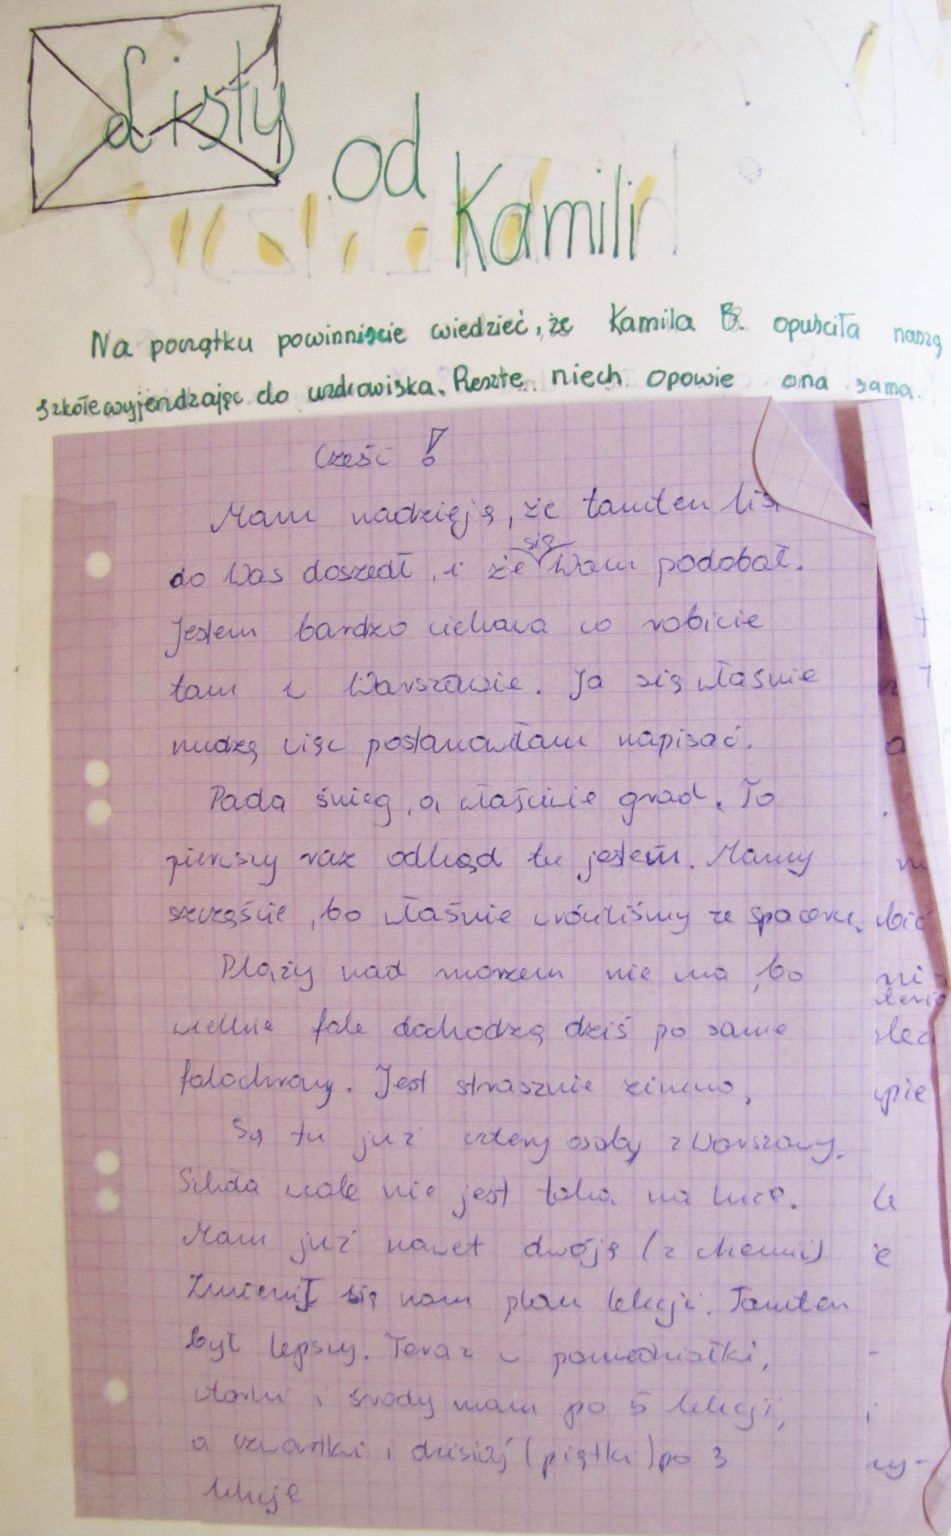 Listy
od
Kamili
Na początku powinniście wiedzieć, że Kamila B. opuściła naszą
szkołę wyjendzając do uzdrowiska. Resztę niech opowie ona sama.
Cześć!
Mam nadzięję, że tamten list
do Was doszedł, i że się Wam podobał.
Jestem bardzo ciekawa co robicie
tam w Warszawie. Ja się właśnie
nudzę więc postanowiłam napisać.
Pada śnieg, a właściwie grad. To
pierwszy raz odkąd tu jestem. Mamy
szczęście, bo właśnie wróciliśmy ze spaceru.
Plaży nad morzem nie ma, bo
wielkie fale dochodzą dziś po same
falochrony. Jest strasznie zimno.
Są tu już cztery osoby z Warszawy.
Szkoła wcale nie jest taka na luce.
Mam już nawet dwóję (z chemii)
Zmienił się nam plan lekcji. Tamten
był lepszy. Teraz w poniedziałki,
wtorki i środy mam po 5 lekcji,
a czwartki i dzisiaj (piątki) po 3
lekcje